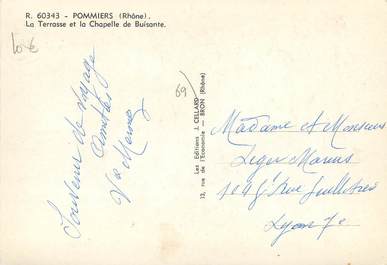 R. 60343 - POMMIERS (Rhône).
La Terrasse et la Chapelle de Buisante.
10€
69/
Souvenir de voyage
Amitiés
Les Editions J. CELLARD
12, rue de l'Economie — BRON (Rhône)
Madame et Monsieur
Leger Marius
Rue
Lyon 7e